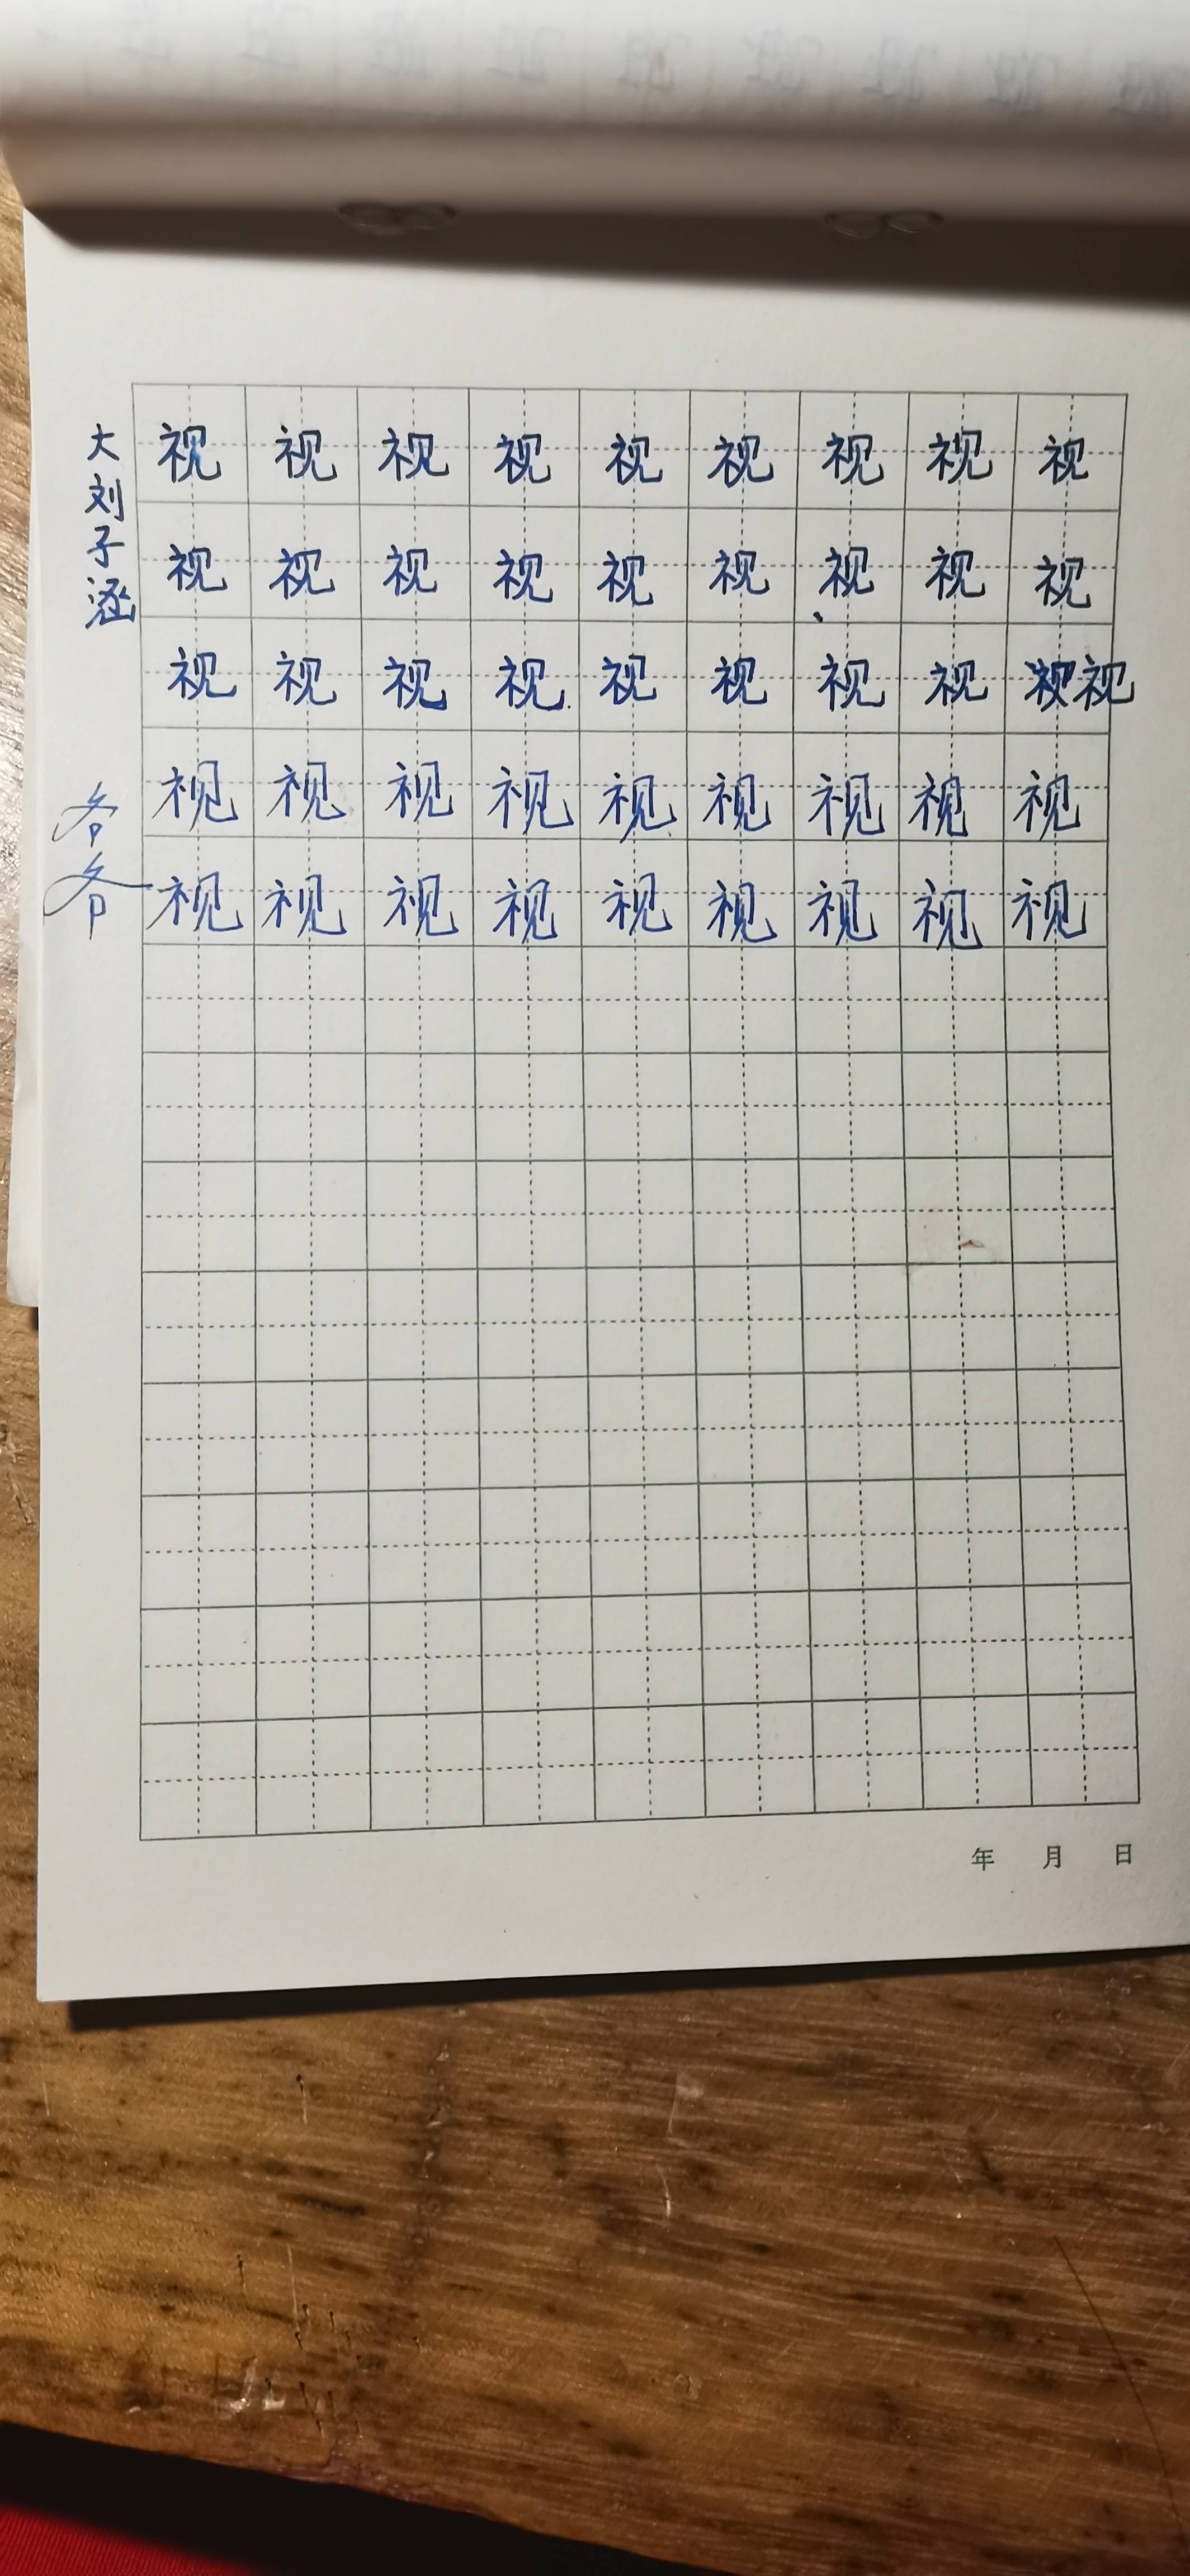 大刘子涵
视 视 视 视 视 视 视 视 视
视 视 视 视 视 视 视 视 视
视 视 视 视 视 视 视 视 视
爷爷
视 视 视 视 视 视 视 视 视
视 视 视 视 视 视 视 视 视
年 月 日